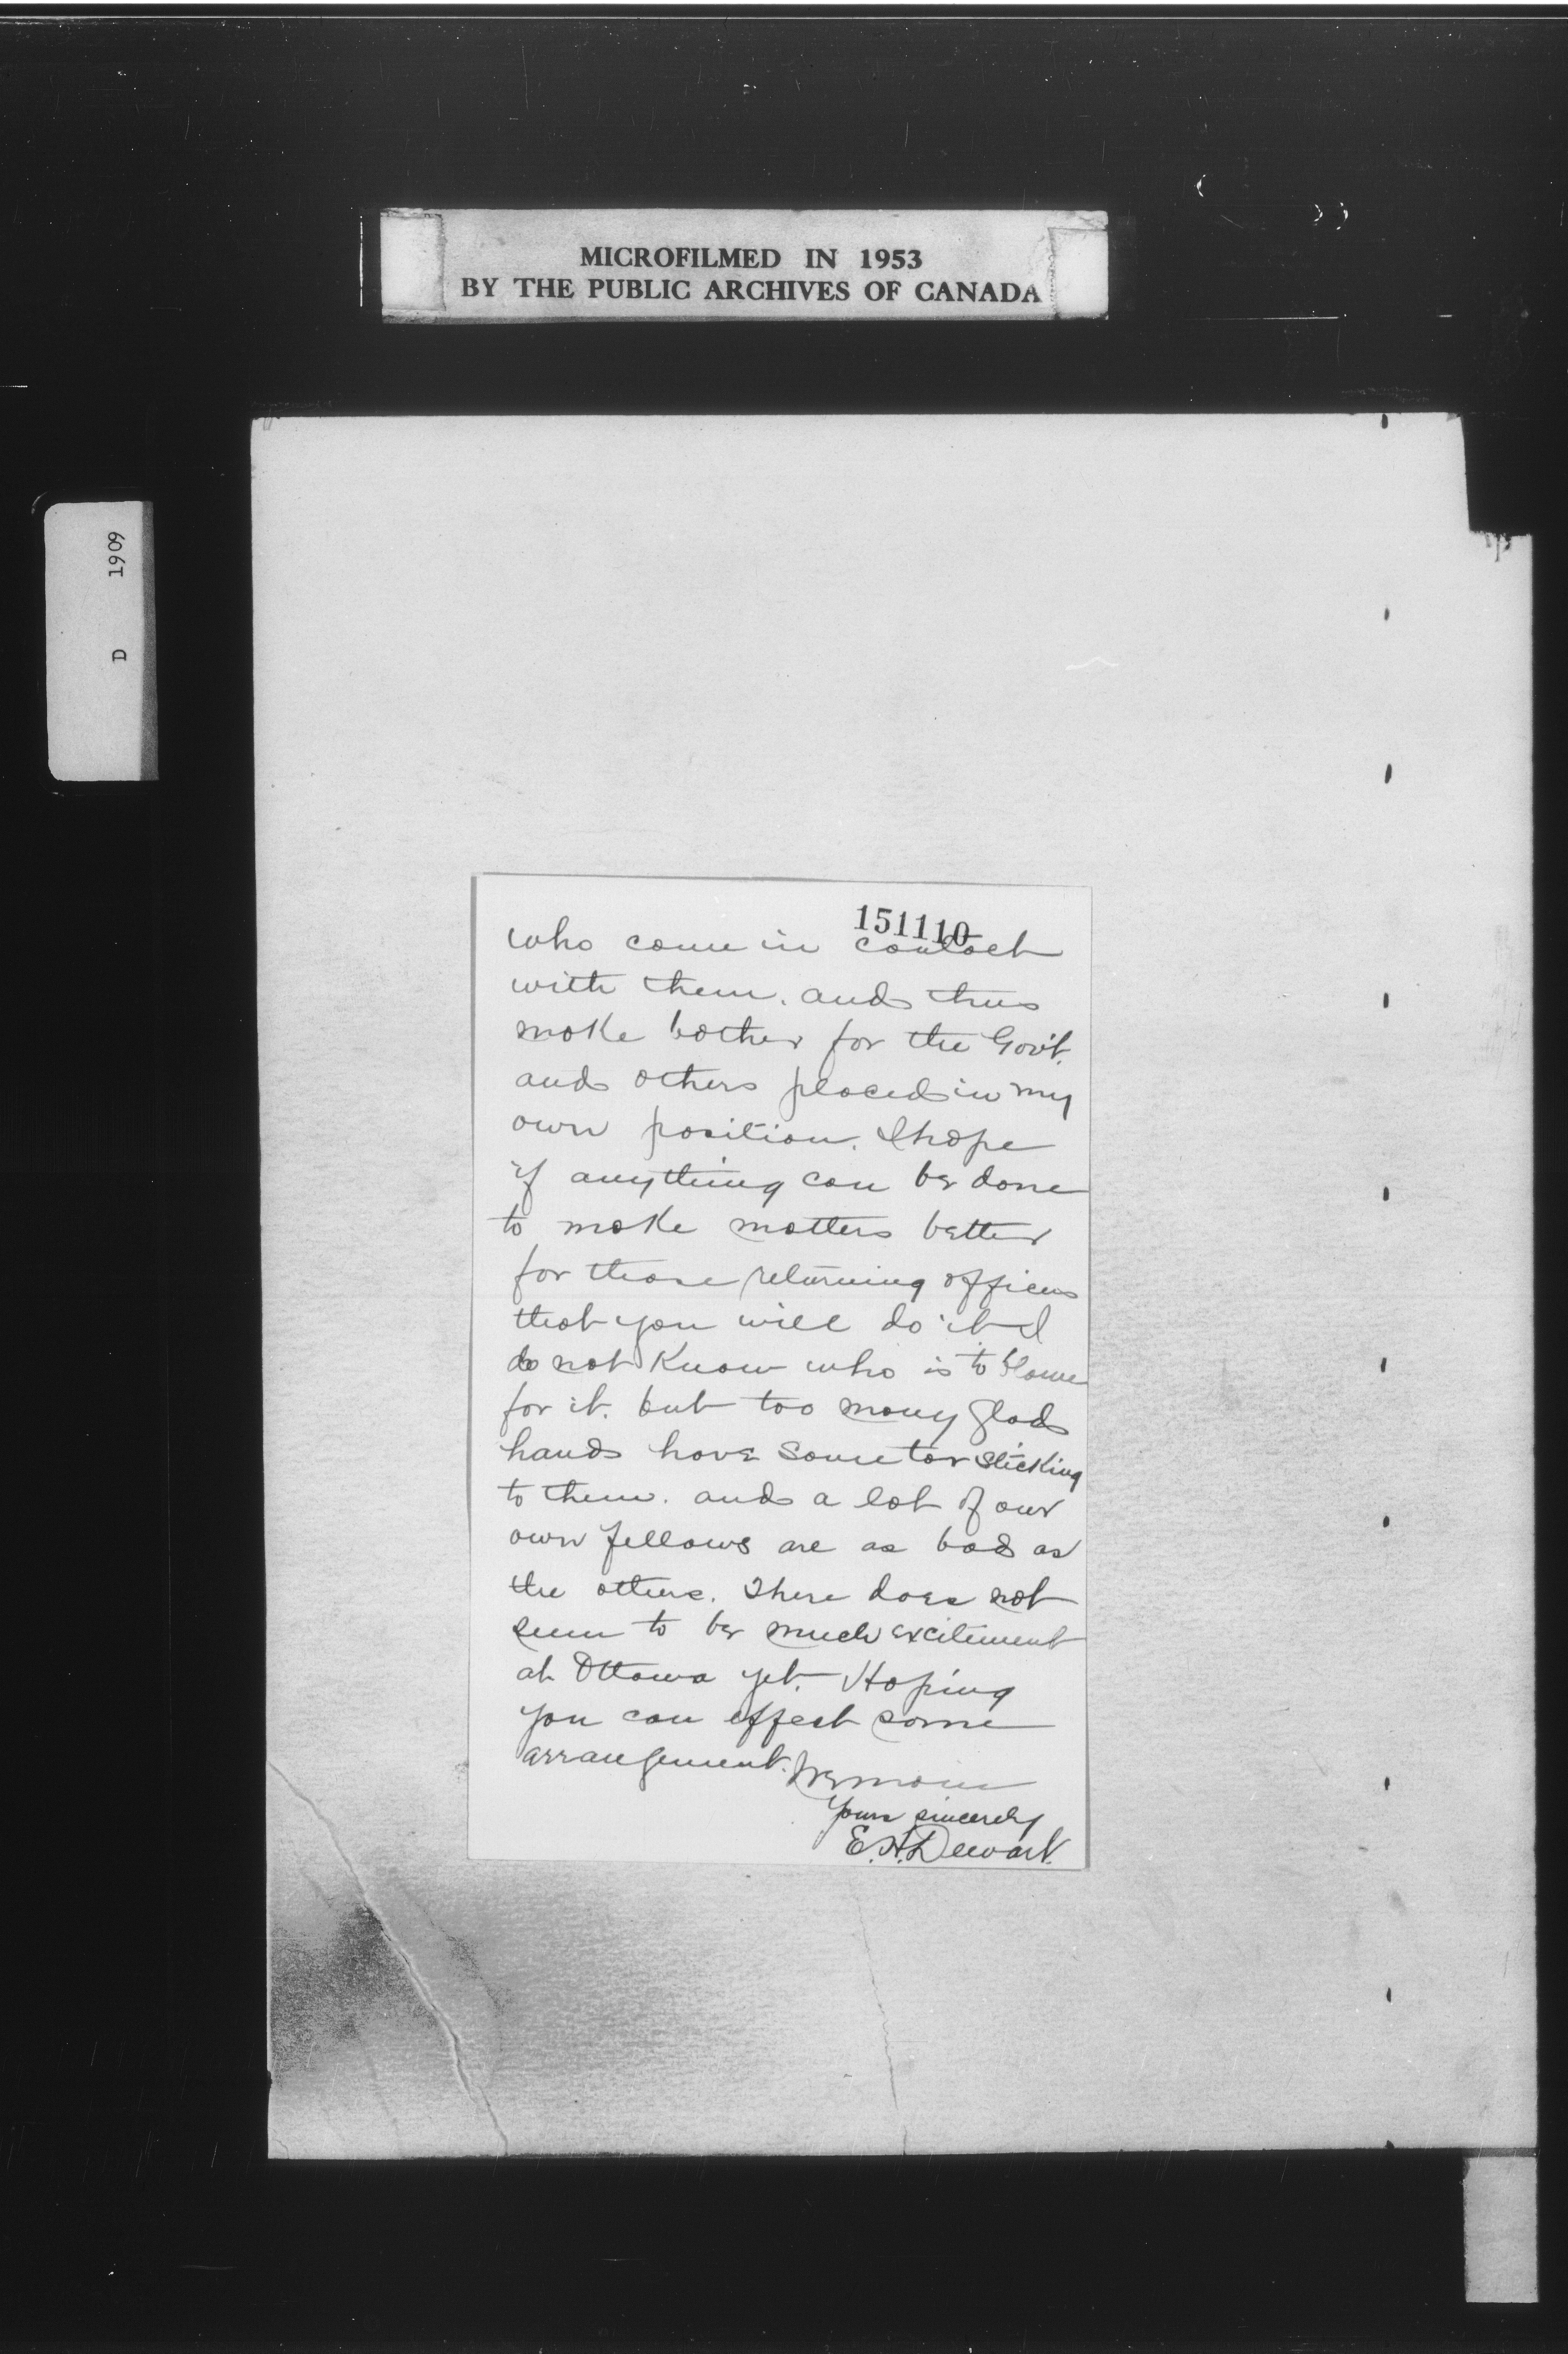 MICROFILMED IN 1953
BY THE PUBLIC ARCHIVES OF CANADA
D 1909
151110
who come in contact
with them. and thus
make bother for the Gov't.
and others placed in my
own position. I hope
if anything can be done
to make matters better
for those returning officers
that you will do it I
do not know who is to blame
for it. but too many glad
hands have some tar sticking
to them. and a lot of our
own fellows are as bad as
the others. There does not
seem to be much excitement
at Ottawa yet. Hoping
you can effect some
arrangement. I remain
Yours sincerely
E. H. Dewart.